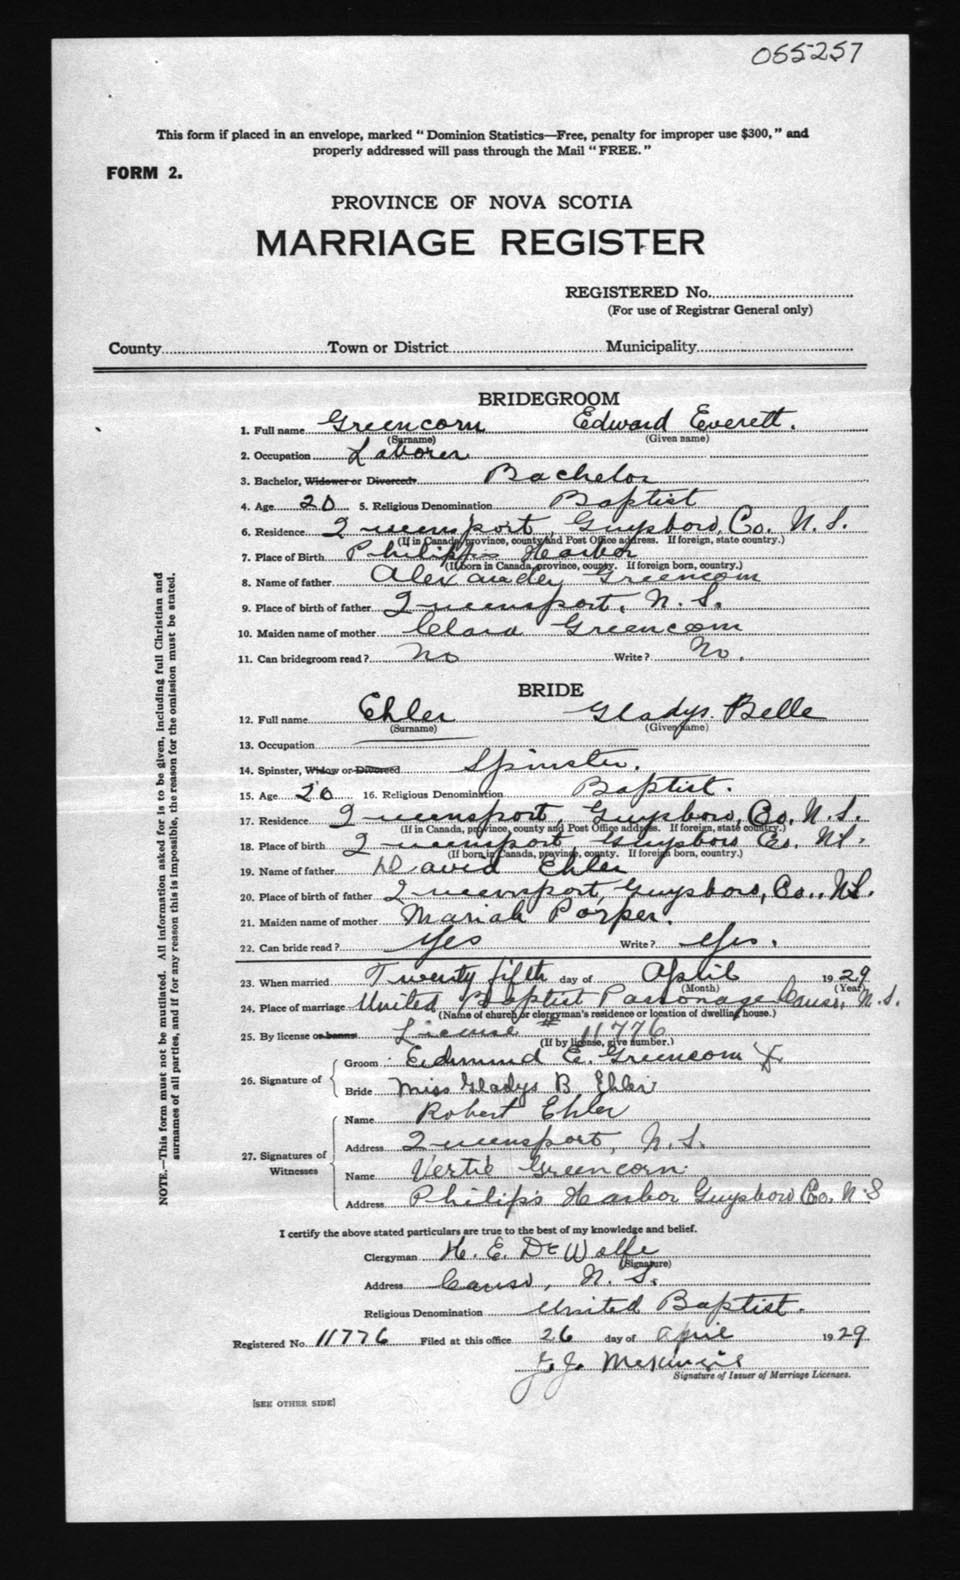 055257
This form if placed in an envelope, marked "Dominion Statistics—Free, penalty for improper use $300," and
properly addressed will pass through the Mail "FREE."
FORM 2.
PROVINCE OF NOVA SCOTIA
MARRIAGE REGISTER
REGISTERED No.
(For use of Registrar General only)
County Town or District Municipality
BRIDEGROOM
1. Full name Greencorn Edward Everett.
(Surname) (Given name)
2. Occupation Laborer
3. Bachelor, Widower or Divorced Bachelor
4. Age 20 5. Religious Denomination Baptist
6. Residence Queensport, Guysboro, Co. N.S.
(If in Canada, province, county and Post Office address. If foreign, state country.)
7. Place of Birth Philip's Harbor
(If born in Canada, province, county. If foreign born, country.)
8. Name of father Alexander Greencorn
9. Place of birth of father Queensport, N.S.
10. Maiden name of mother Clara Greencorn
11. Can bridegroom read? No Write? No.
BRIDE
12. Full name Ehler Gladys Belle
(Surname) (Given name)
13. Occupation
14. Spinster, Widow or Divorced Spinster.
15. Age 20 16. Religious Denomination Baptist.
17. Residence Queensport, Guysboro, Co. N.S.
(If in Canada, province, county and Post Office address. If foreign, state country.)
18. Place of birth Queensport Guysboro Co. N.S.
(If born in Canada, province, county. If foreign born, country.)
19. Name of father David Ehler
20. Place of birth of father Queensport, Guysboro, Co., N.S.
21. Maiden name of mother Mariah Porper.
22. Can bride read? Yes Write? Yes.
23. When married Twenty fifth day of April 1929
(Month) (Year)
24. Place of marriage United Baptist Parsonage Canso, N.S.
(Name of church or clergyman's residence or location of dwelling house.)
25. By license or banns License # 11776
(If by license, give number.)
26. Signature of Groom Edmund E. Greencorn X
Bride Miss Gladys B Ehler
27. Signatures of Witnesses Name Robert Ehler
Address Queensport, N.S.
Name Vertie Greencorn
Address Philip's Harbor Guysboro Co. N.S
I certify the above stated particulars are true to the best of my knowledge and belief.
Clergyman H. E. DeWolfe
(Signature)
Address Canso, N.S.
Religious Denomination United Baptist.
Registered No. 11776 Filed at this office 26 day of April 1929
Signature of Issuer of Marriage Licenses.
[SEE OTHER SIDE]
NOTE.—This form must not be mutilated. All information asked for is to be given, including full Christian and
surnames of all parties, and if for any reason this is impossible, the reason for the omission must be stated.